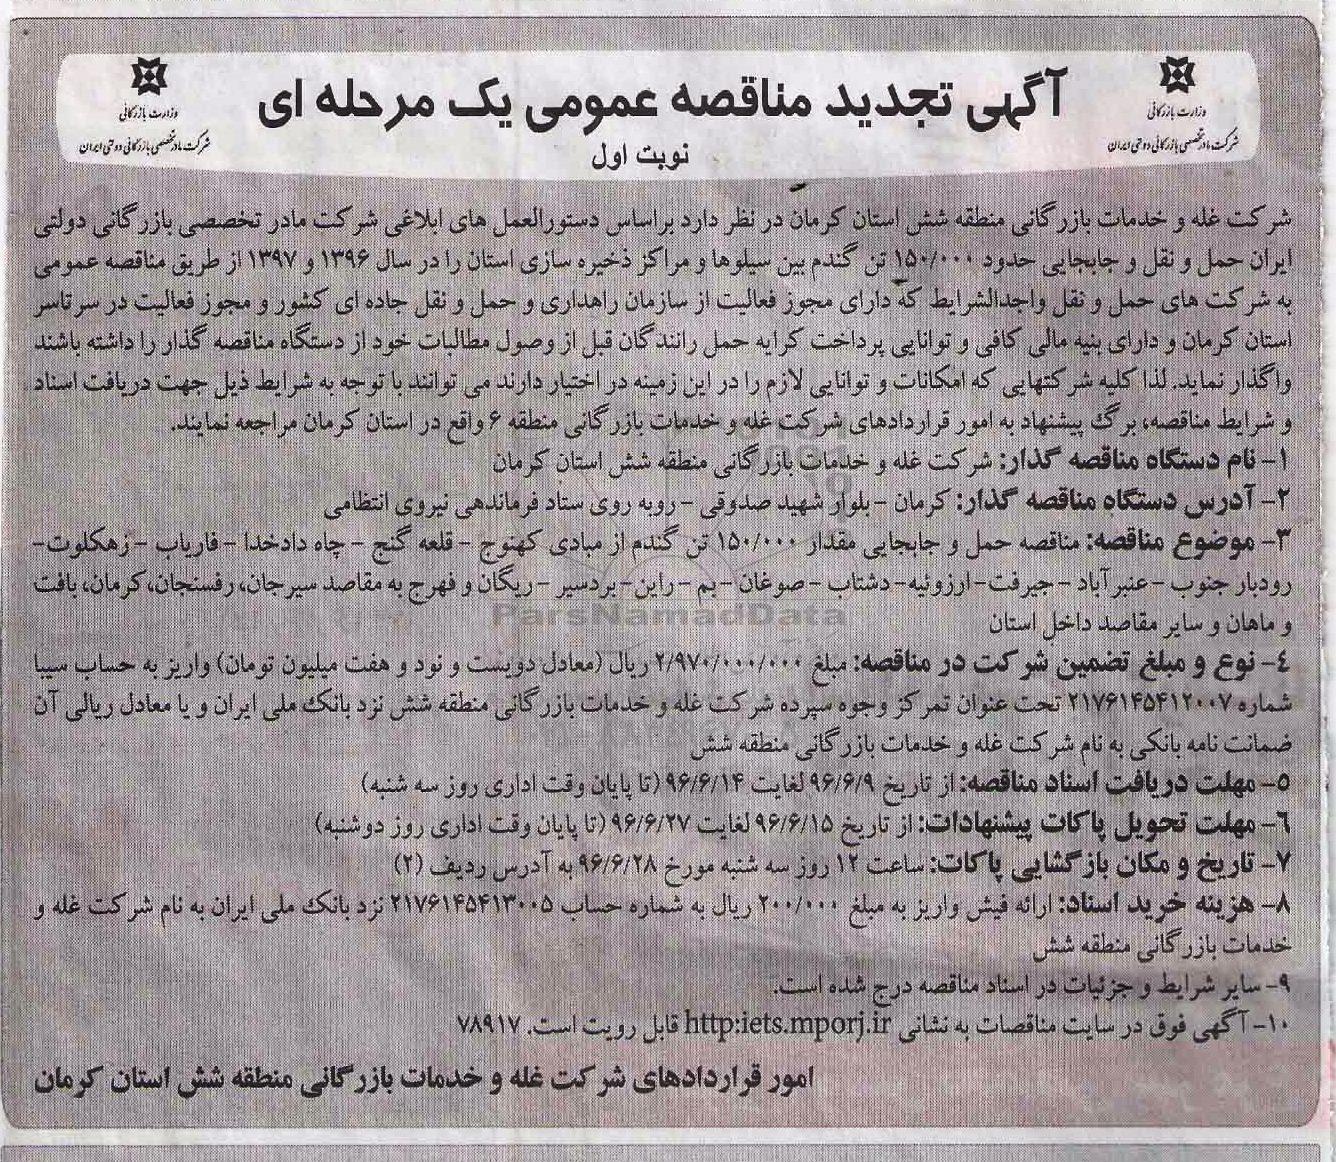 وزارت بازرگانی
شرکت مادر تخصصی بازرگانی دولتی ایران
آگهی تجدید مناقصه عمومی یک مرحله ای
نوبت اول
وزارت بازرگانی
شرکت مادر تخصصی بازرگانی دولتی ایران
شرکت غله و خدمات بازرگانی منطقه شش استان کرمان در نظر دارد براساس دستورالعمل های ابلاغی شرکت مادر تخصصی بازرگانی دولتی
ایران حمل و نقل و جابجایی حدود ۱۵۰/۰۰۰ تن گندم بین سیلوها و مراکز ذخیره سازی استان را در سال ۱۳۹۶ و ۱۳۹۷ از طریق مناقصه عمومی
به شرکت های حمل و نقل واجدالشرایط که دارای مجوز فعالیت از سازمان راهداری و حمل و نقل جاده ای کشور و مجوز فعالیت در سرتاسر
استان کرمان و دارای بنیه مالی کافی و توانایی پرداخت کرایه حمل رانندگان قبل از وصول مطالبات خود از دستگاه مناقصه گذار را داشته باشند
واگذار نماید. لذا کلیه شرکتهایی که امکانات و توانایی لازم را در این زمینه در اختیار دارند می توانند با توجه به شرایط ذیل جهت دریافت اسناد
و شرایط مناقصه، برگ پیشنهاد به امور قراردادهای شرکت غله و خدمات بازرگانی منطقه ۶ واقع در استان کرمان مراجعه نمایند.
۱- نام دستگاه مناقصه گذار: شرکت غله و خدمات بازرگانی منطقه شش استان کرمان
۲- آدرس دستگاه مناقصه گذار: کرمان - بلوار شهید صدوقی - روبه روی ستاد فرماندهی نیروی انتظامی
۳- موضوع مناقصه: مناقصه حمل و جابجایی مقدار ۱۵۰/۰۰۰ تن گندم از مبادی کهنوج - قلعه گنج - چاه دادخدا - فاریاب - زهکلوت-
رودبار جنوب - عنبرآباد - جیرفت- ارزوئیه- دشتاب - صوغان -بم - راین- بردسیر - ریگان و فهرج به مقاصد سیرجان، رفسنجان،کرمان، بافت
و ماهان و سایر مقاصد داخل استان
ParsNamadData
٤- نوع و مبلغ تضمین شرکت در مناقصه: مبلغ ۲/۹۷۰/۰۰۰/۰۰۰ ریال (معادل دویست و نود و هفت میلیون تومان) واریز به حساب سیبا
شماره ۲۱۷۶۱۴۵۴۱۲۰۰۷ تحت عنوان تمرکز وجوه سپرده شرکت غله و خدمات بازرگانی منطقه شش نزد بانک ملی ایران و یا معادل ریالی آن
ضمانت نامه بانکی به نام شرکت غله و خدمات بازرگانی منطقه شش
۵- مهلت دریافت اسناد مناقصه: از تاریخ ۹۶/۶/۹ لغایت ۹۶/۶/۱۴ (تا پایان وقت اداری روز سه شنبه)
٦- مهلت تحویل پاکات پیشنهادات: از تاریخ ۹۶/۶/۱۵ لغایت ۹۶/۶/۲۷ (تا پایان وقت اداری روز دوشنبه)
۷- تاریخ و مکان بازگشایی پاکات: ساعت ۱۲ روز سه شنبه مورخ ۹۶/۶/۲۸ به آدرس ردیف (۲)
۸- هزینه خرید اسناد: ارائه فیش واریز به مبلغ ۲۰۰/۰۰۰ ریال به شماره حساب ۲۱۷۶۱۴۵۴۱۳۰۰۵ نزد بانک ملی ایران به نام شرکت غله و
خدمات بازرگانی منطقه شش
۹- سایر شرایط و جزئیات در اسناد مناقصه درج شده است.
۱۰- آگهی فوق در سایت مناقصات به نشانی http:iets.mporj.ir قابل رویت است. ۷۸۹۱۷
امور قراردادهای شرکت غله و خدمات بازرگانی منطقه شش استان کرمان